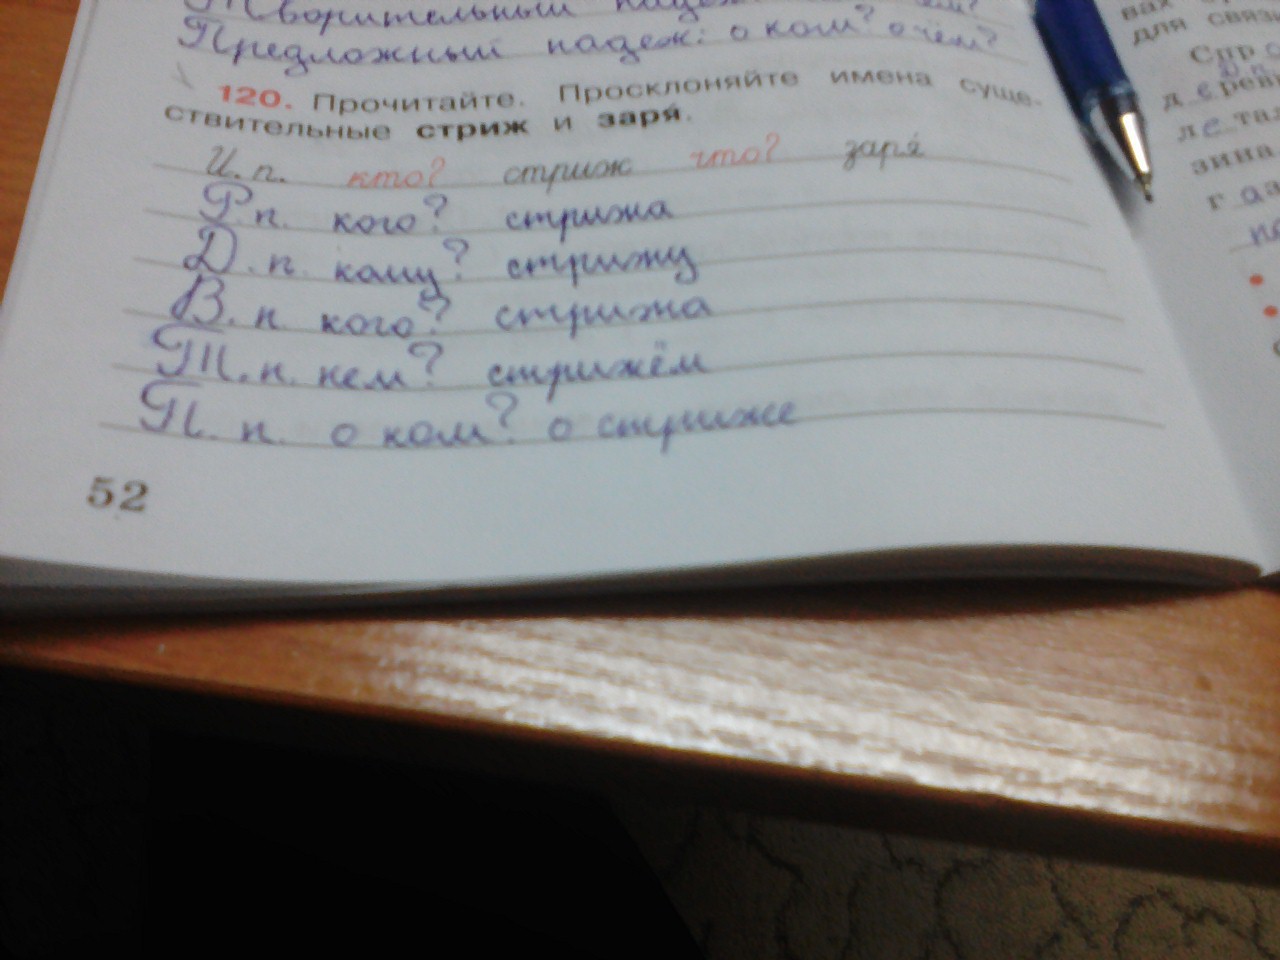 Творительный
Предложный падеж: о ком? о чём?
120. Прочитайте. Просклоняйте имена суще-
ствительные стриж и заря́.
И. п. кто? стриж что? заря́
Р. п. кого? стрижа
Д. п. кому? стрижу
В. п. кого? стрижа
Т. п. кем? стрижём
П. п. о ком? о стриже
52
вах
для связ
Спр
д е рев
л е та
зина
г а